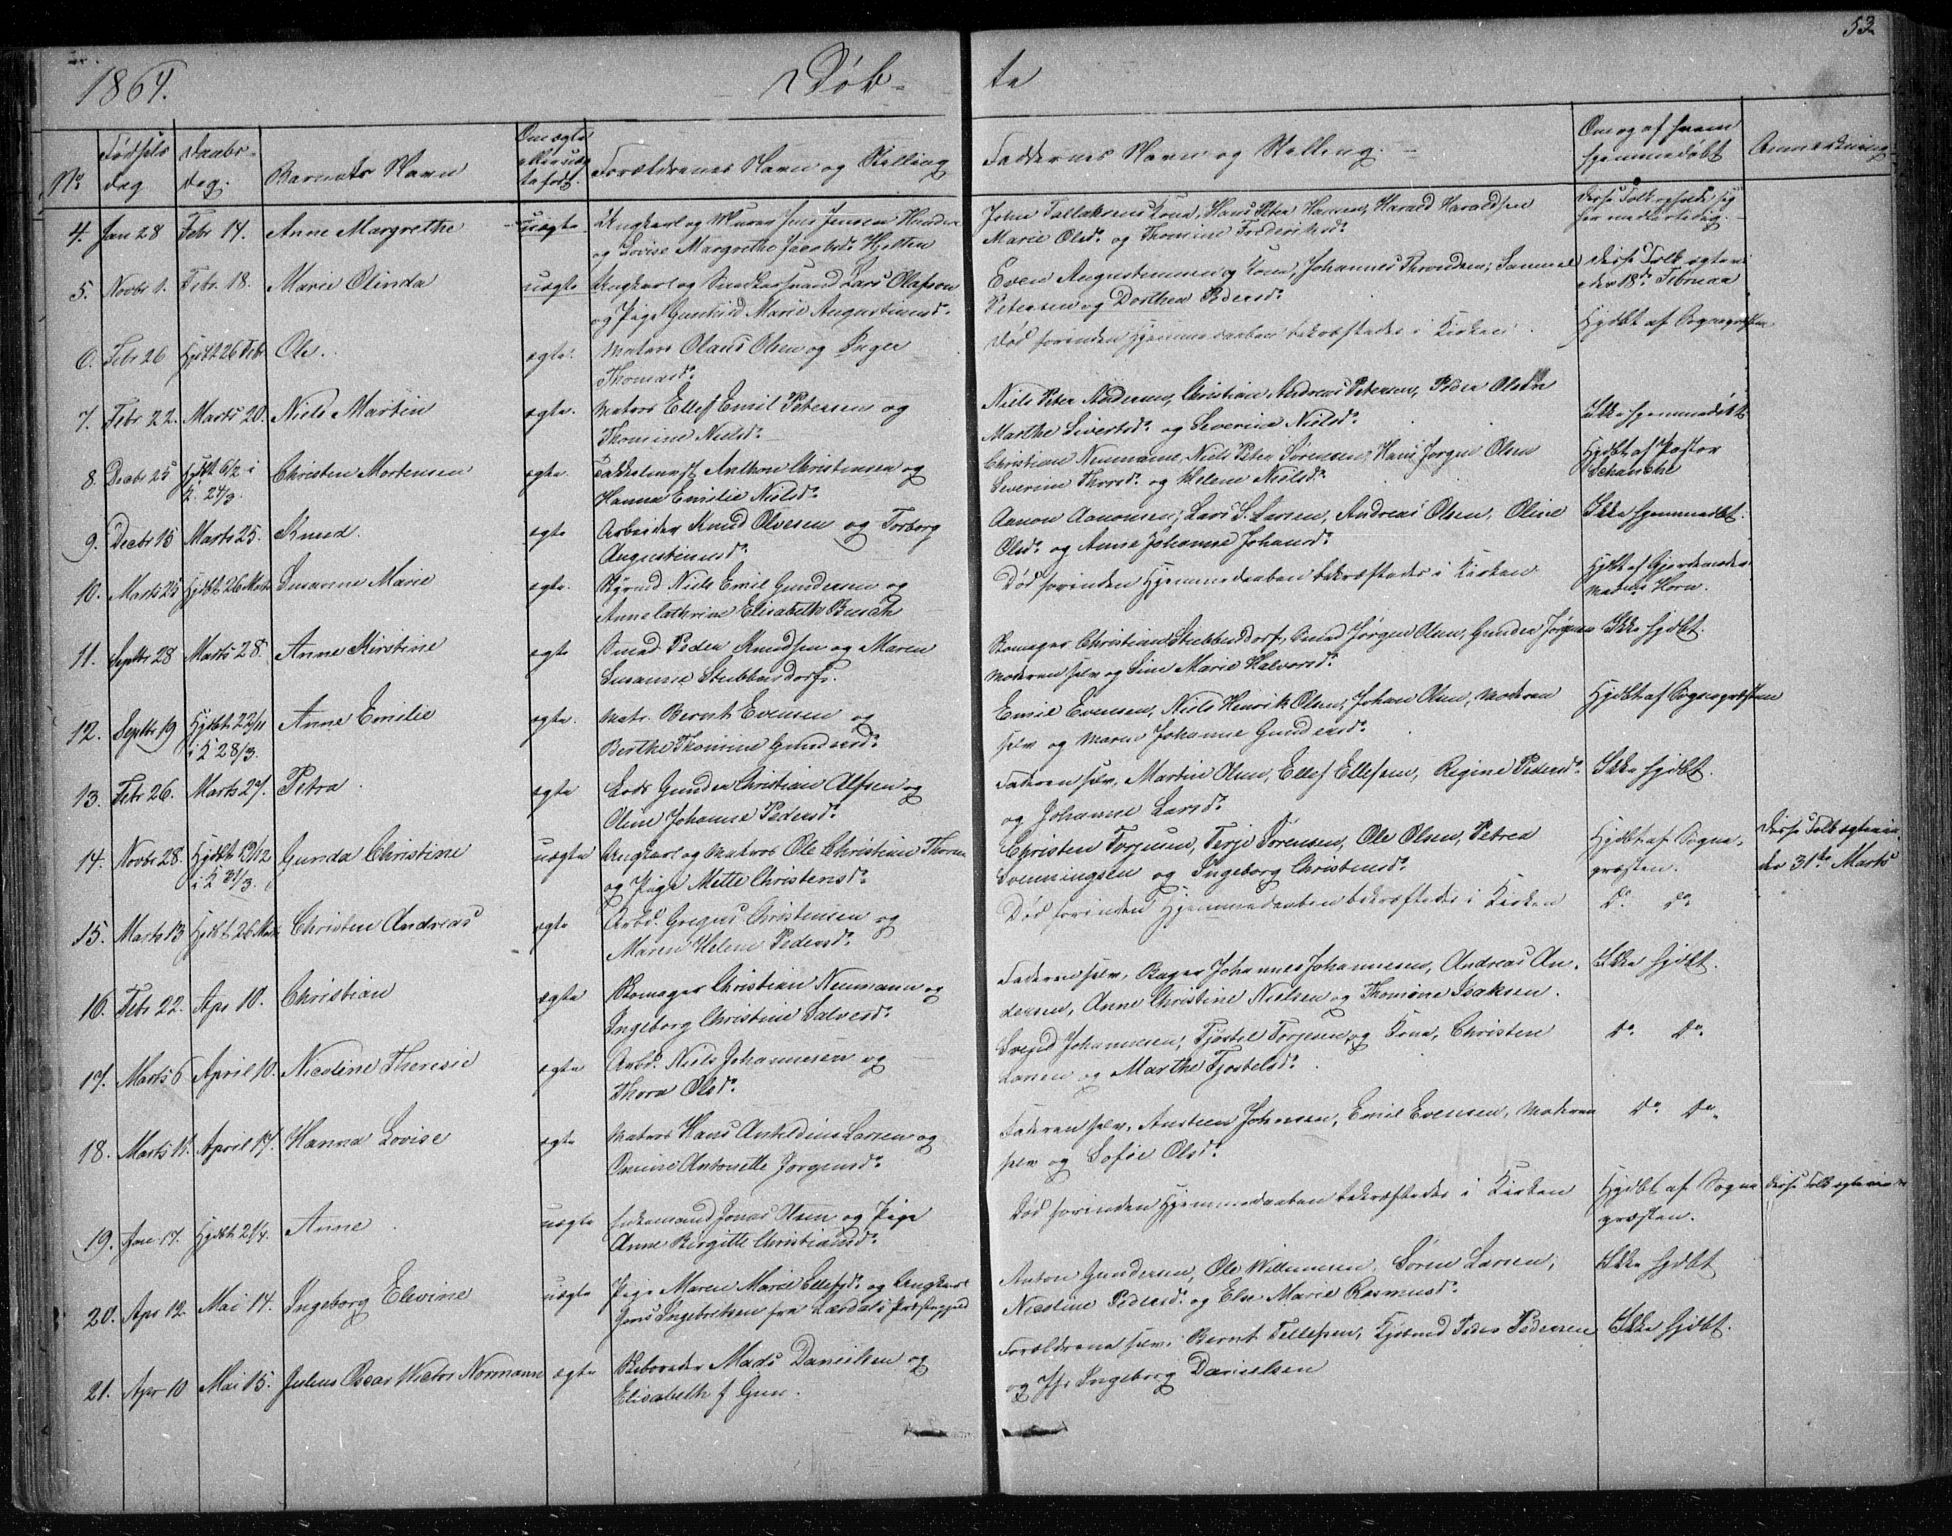 53.
1864. Døb- te
No Fødsels dag Daabs dag. Barnets Navn Om ægte eller uægte født. Forældrenes Navn og Stilling Faddernes Navn og Stilling. Om og af hvem hjemmedøbt Anmærkning
4. Jan 28 Febr 14. Anne Margrethe uægte Ungkarl og Murer Jens Jensen
og Lovise Margrethe Jacobsdr Hjelten
John Tallaksens Kone, Hans Peter Hansen, Harald Haraldsen
Marie Olsdr og Thomine Frederiksdr
disse Folk opholde sig
her midlertidig.
5. Novbr 1. Febr. 18. Marie Olinda uægte Ungkarl og Lars Olafson
og Pige Gunhild Marie Augustinusdr
Even Augustinussen og Kone, Johannes Throndsen, Samuel
Petersen og Dorthea Pedersdr
disse Folk ægtevi
den 18de Februar
6. Febr 26 Hjdbt 26 Febr Ole. ægte. Matros Olaus Olsen og Inger
Thomasdr
Død forinden Hjemmedaaben bekræftedes i Kirken.
Hjdbt af Sognepræsten
7. Febr 22. Marts 20. Niels Martin ægte. Matros Ellef Emil Petersen og
Thomine Nielsdr
Niels Peter Andersen, Christian Andreas Petersen, Peder Olsen
Marthe Sivertsdr og Severine Nielsdr
Ikke hjemmedøbt
8. Decbr 25 Hjdbt 6/2 i K. 24/3. Christen Mortensen ægte. Anthon Christensen og
Hanna Emilie Nielsdr
Christian Neumann, Niels Peter Sørensen, Hans Jørgen Olsen
Severine Thorsdr og Helene Nielsdr
Hjdbt af Pastor
Schanche
9. Decbr 15 Marts 25. Knud. ægte Arbeider Knud Olvesen og Torborg
Augustinusdr
Aanon Aanonsen, Lars S. Larsen, Andreas Olsen, Oline
Olsdr og Anne Johanne Johansdr
Ikke hjemmedbt.
10. Marts 25 Hjdbt 26 Marts Susanne Marie ægte. Niels Emil Gundersen og
Anne Cathrine Elisabeth Busch
Død forinden Hjemmedaaben bekræftedes i Kirken
Hjdbt af Gjordemoder
Madm Horn.
11. Septbr 28 Marts 28. Anne Kirstine ægte Smed Peder Knudsen og Maren
Susanne Stubbendorf.
Christian Stubbendorf, Smed Jørgen Olsen, Gunder Jørgensen
Moderen selv og Sine Marie Halvorsdr
Ikke hjdbt.
12. Septbr 19 Hjdbt 22/11 i K 28/3. Anne Emilie ægte. Matr. Bernt Evensen og
Berthe Thomine Gundersdr
Emil Evensen, Niels Henrik Olsen, Johan Olsen, Moderen
selv og Maren Johanne Gundersdr
Hjdbt af Sognepræsten
13. Febr 26. Marts 27. Petra ægte Lods Gunder Christian Alfsen og
Oline Johanne Pedersdr
Faderen selv, Martin Olsen, Ellef Ellefsen, Regine Pedersdr
og Johanne Larsdr
Ikke hjdbt.
14. Novbr 28. Hjdbt 19/12 i K 31/3. Gunda Christine uægte Ungkarl og Matros Ole Christian Thorsen
og Pige Mette Christensdr
Christen Torjusen, Terje Sørensen, Ole Olsen, Petrea
Svenningsen og Ingeborg Christensdr
Hjdbt af Sogne-
præsten.
disse Folk ægtevie
den 31te Marts
15. Marts 13 Hjdbt 26 Marts Christen Andreas ægte Arbdr Gregers Christensen og
Maren Helene Pedersdr
Død forinden Hjemmedaaben bekræftedes i Kirken
do do
16. Febr 22. Apr 10. Christian ægte Christian Neumann og
Ingeborg Christine Salvesdr
Faderen selv, Bager Johannes Johannesen, Andreas An-
dersen, Anne Christine Nielsen og Thomine Isaksen.
Ikke hjdbt.
17. Marts 6 April 10. Nicoline Theresie ægte Arbdr Niels Johannesen og
Thora Olsdr
Johannesen, Tjøstel Torjesen og Kone, Christen
Larsen og Marthe Tjøstelsdr
do do
18. Marts 11. April 17. Hanna Lovise ægte Matros Hans Larsen og
Antonette Jørgensdr
Faderen selv, Austeen Johnsen, Emil Evensen, Moderen
selv og Sofie Olsdr
do do.
19. Jan 17. Hjdbt 21/4. Anne. uægte Enkemand Jonas Olsen og Pige
Anne Birgitte Christiansdr
Død forinden Hjemmedaaben bekræftedes i Kirken
Hjdbt af Sogne
præsten.
disse Folk ægtevie
20. Apr 12. Mai 14. Ingeborg Elevine uægte Pige Maren Marie Ellefsdr og Ungkarl
Jens Ingebretsen fra Lærdals Præstegjeld
Anton Gundersen, Ole Willumsen, Søren Larsen,
Nicoline Pedersdr og Else Marie Rasmusdr
Ikke hjdbt
21. Apr 10 Mai 15. Julius Oscar Victor Normann ægte Mads Danielsen og
Elisabeth f Gun.
Forældrene selv, Bernt Tellefsen, Kjøbmd Peder Pedersen
og Jfr Ingeborg Danielsen
Ikke hjdbt.